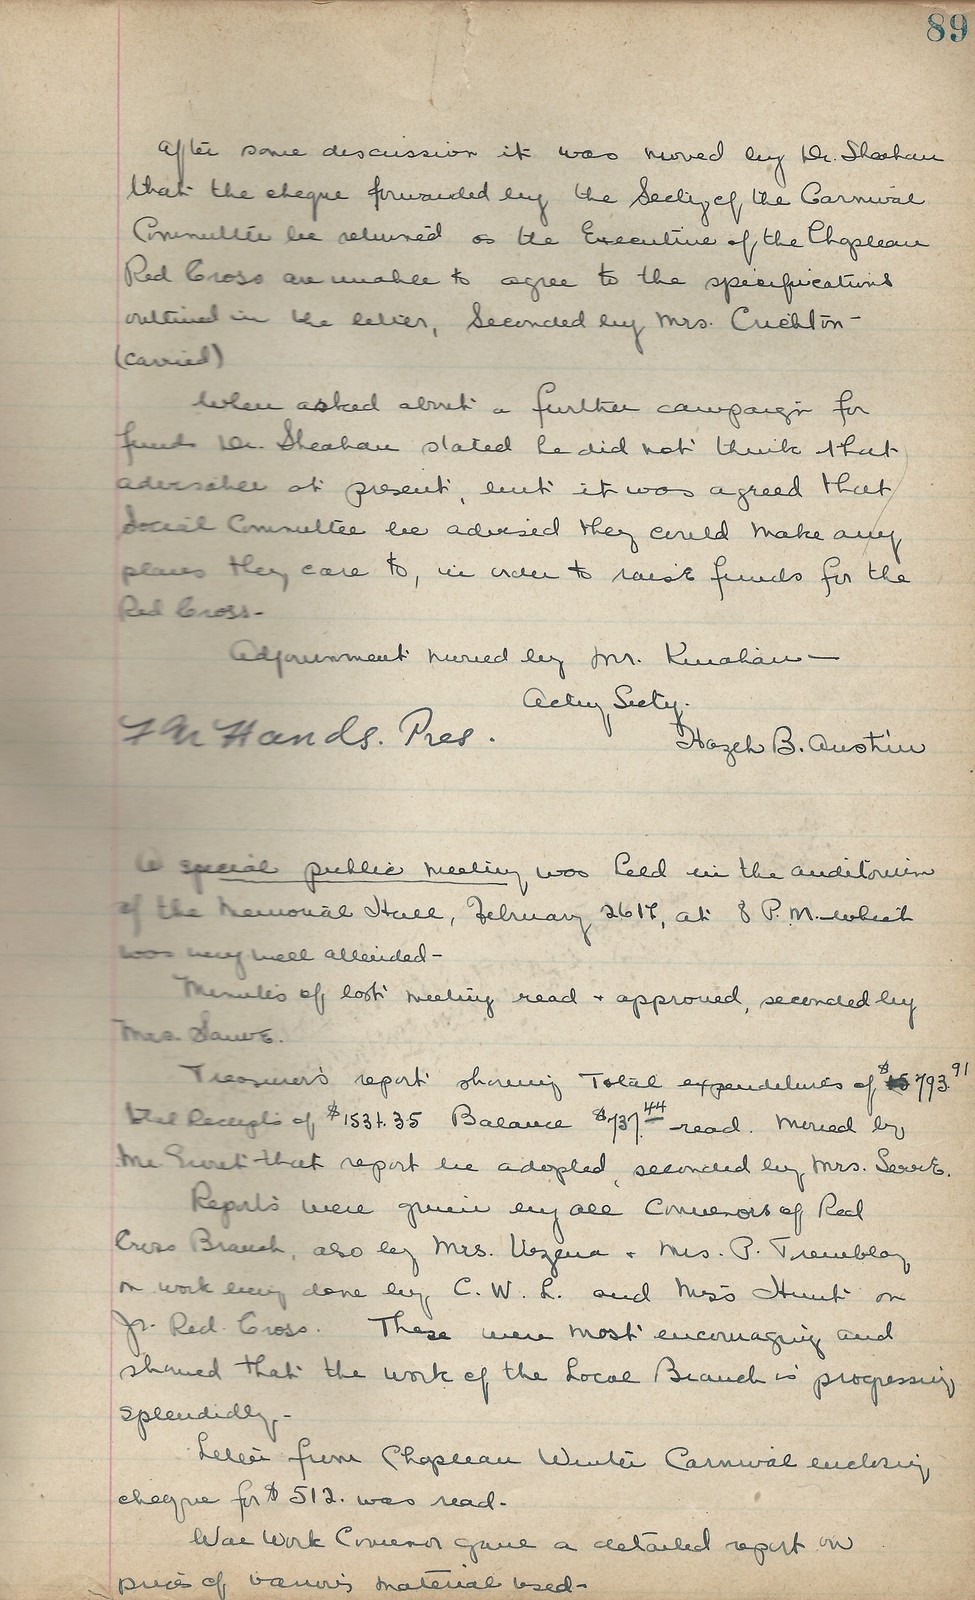 89
After some discussion it was moved by Dr. Sheahan
that the cheque forwarded by the Sectiy of the Carnival
Committee be returned as the Executive of the Chapleau
Red Cross are unable to agree to the specifications
outlined in the letter, Seconded by Mrs. Crichton -
(carried)
When asked about a further campaign for
funds Dr. Sheahan stated he did not think that
advisable at present, but it was agreed that
Social Committee be advised they could make any
plans they care to, in order to raise funds for the
Red Cross -
Adjournment moved by Mr. Kinahan -
Acting Secty.
Hands. Pres.
Hazel B. Austin
A special public meeting was held in the auditorium
of the Memorial Hall, February 26th, at 8 P.M. which
was very well attended -
Minutes of last meeting read + approved, seconded by
Mrs. Sauve.
Treasurer's report showing Total expenditures of $793.91
total Receipts of $1531.35 Balance $737.44 read. Moved by
that report be adopted, seconded by Mrs. Sauve.
Reports were given by all Convenors of Red
Cross Branch, also by Mrs. Vezena + Mrs. P. Tremblay
on work being done by C. W. L. and Miss Hunt on
Jr. Red Cross. These were most encouraging and
showed that the work of the Local Branch is progressing
splendidly, -
Letter from Chapleau Winter Carnival enclosing
cheque for $512. was read -
War Work Convenor gave a detailed report on
prices of various material used -